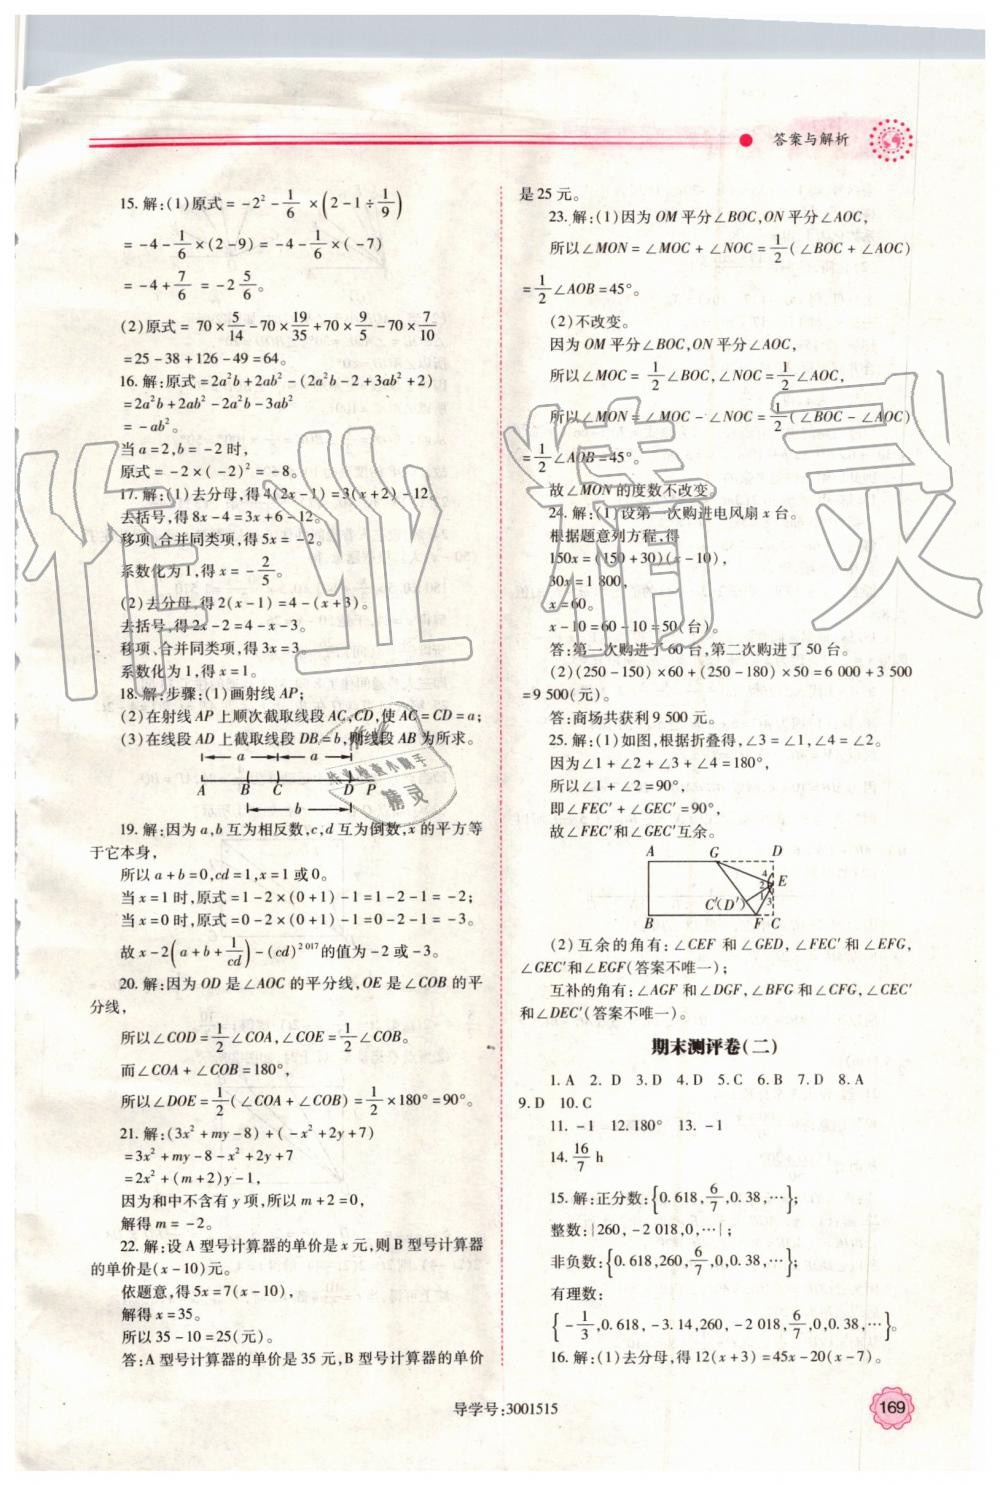 答案与解析
15.解:(1)原式=-2²-1/6×(2-1÷1/9)
=-4-1/6×(2-9)=-4-1/6×(-7)
=-4+7/6=-2 5/6。
(2)原式=70×5/14-70×19/35+70×9/5-70×7/10
=25-38+126-49=64。
16.解:原式=2a²b+2ab²-(2a²b-2+3ab²+2)
=2a²b+2ab²-2a²b-3ab²
=-ab²。
当a=2,b=-2时,
原式=-2×(-2)²=-8。
17.解:(1)去分母,得4(2x-1)=3(x+2)-12。
去括号,得8x-4=3x+6-12。
移项、合并同类项,得5x=-2。
系数化为1,得x=-2/5。
(2)去分母,得2(x-1)=4-(x+3)。
去括号,得2x-2=4-x-3。
移项、合并同类项,得3x=3。
系数化为1,得x=1。
18.解:步骤:(1)画射线AP;
(2)在射线AP上顺次截取线段AC,CD,使AC=CD=a;
(3)在线段AD上截取线段DB=b,则线段AB为所求。
a a
A B C D P
b
19.解:因为a,b互为相反数,c,d互为倒数,x的平方等
于它本身,
所以a+b=0,cd=1,x=1或0。
当x=1时,原式=1-2×(0+1)-1=1-2-1=-2;
当x=0时,原式=0-2×(0+1)-1=0-2-1=-3。
故x-2(a+b+1/cd)-(cd)²⁰¹⁷的值为-2或-3。
20.解:因为OD是∠AOC的平分线,OE是∠COB的平
分线,
所以∠COD=1/2∠COA,∠COE=1/2∠COB。
而∠COA+∠COB=180°,
所以∠DOE=1/2(∠COA+∠COB)=1/2×180°=90°。
21.解:(3x²+my-8)+(-x²+2y+7)
=3x²+my-8-x²+2y+7
=2x²+(m+2)y-1,
因为和中不含有y项,所以m+2=0,
解得m=-2。
22.解:设A型号计算器的单价是x元,则B型号计算器
的单价是(x-10)元。
依题意,得5x=7(x-10),
解得x=35。
所以35-10=25(元)。
答:A型号计算器的单价是35元,B型号计算器的单价
是25元。
23.解:(1)因为OM平分∠BOC,ON平分∠AOC,
所以∠MON=∠MOC+∠NOC=1/2(∠BOC+∠AOC)
=1/2∠AOB=45°。
(2)不改变。
因为OM平分∠BOC,ON平分∠AOC,
所以∠MOC=1/2∠BOC,∠NOC=1/2∠AOC,
所以∠MON=∠MOC-∠NOC=1/2(∠BOC-∠AOC)
=1/2∠AOB=45°。
故∠MON的度数不改变。
24.解:(1)设第一次购进电风扇x台。
根据题意列方程,得
150x=(150+30)(x-10),
30x=1 800,
x=60。
x-10=60-10=50(台)。
答:第一次购进了60台,第二次购进了50台。
(2)(250-150)×60+(250-180)×50=6 000+3 500
=9 500(元)。
答:商场共获利9 500元。
25.解:(1)如图,根据折叠得,∠3=∠1,∠4=∠2。
因为∠1+∠2+∠3+∠4=180°,
所以∠1+∠2=90°,
即∠FEC′+∠GEC′=90°,
故∠FEC′和∠GEC′互余。
A G D
4
2 E
C′(D′) 3
B F C
(2)互余的角有:∠CEF和∠GED,∠FEC′和∠EFG,
∠GEC′和∠EGF(答案不唯一);
互补的角有:∠AGF和∠DGF,∠BFG和∠CFG,∠CEC′
和∠DEC′(答案不唯一)。
期末测评卷(二)
1.A 2.D 3.D 4.D 5.C 6.B 7.D 8.A
9.D 10.C
11.-1 12.180° 13.-1
14.16/7 h
15.解:正分数:{0.618,6/7,0.38,…};
整数:{260,-2 018,0,…};
非负数:{0.618,260,6/7,0,0.38,…};
有理数:
{-1/3,0.618,-3.14,260,-2 018,6/7,0,0.38,…}。
16.解:(1)去分母,得12(x+3)=45x-20(x-7)。
导学号:3001515
169
作业精灵
作业检查小助手
精灵